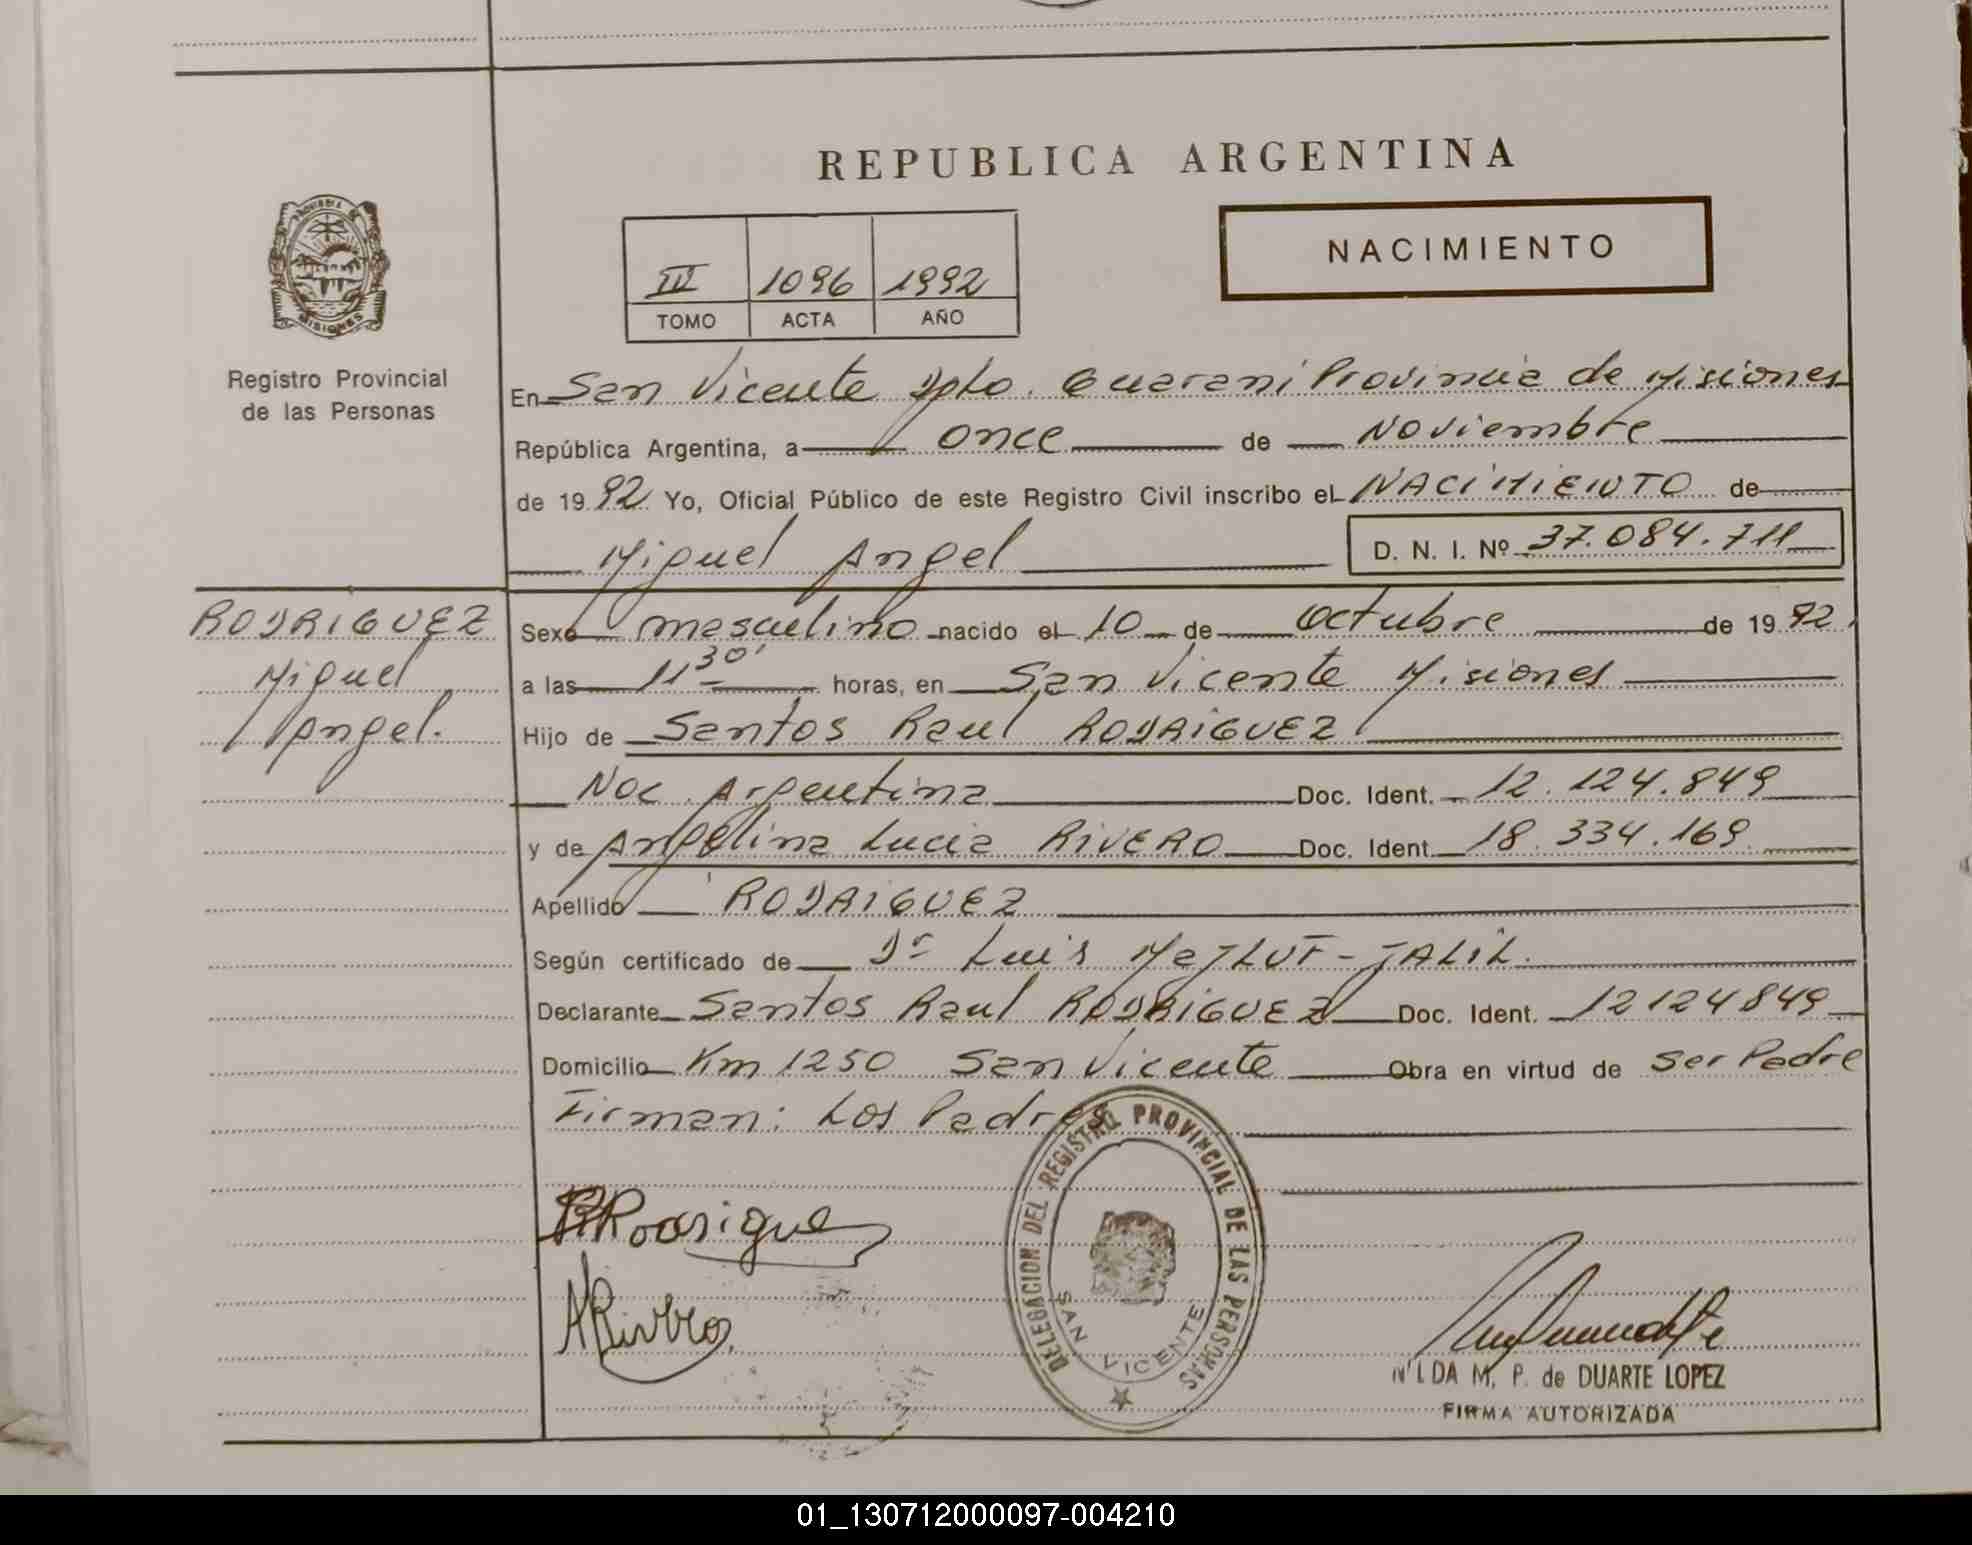 REPUBLICA ARGENTINA
NACIMIENTO
III 1096 1992
TOMO ACTA AÑO
MISIONES
Registro Provincial
de las Personas
En San Vicente Dpto. Guarani Provincia de Misiones
República Argentina, a once de Noviembre
de 1992 Yo, Oficial Público de este Registro Civil inscribo el NACIMIENTO de
Miguel Angel D. N. I. Nº 37.084.711
RODRIGUEZ
Miguel
Angel.
Sexo masculino nacido el 10 de octubre de 1992.
a las 11 30' horas, en San Vicente Misiones
Hijo de Santos Raul RODRIGUEZ
Nac. Argentina Doc. Ident. 12.124.849
y de Angelina Lucia RIVERO Doc. Ident. 18.334.169
Apellido RODRIGUEZ
Según certificado de Dr Luis JALIL.
Declarante Santos Raul RODRIGUEZ Doc. Ident. 12124849
Domicilio Km 1250 San Vicente Obra en virtud de ser Padre
Firman: Los Padres
RRodrigue
ARivero
DELEGACION DEL REGISTRO PROVINCIAL DE LAS PERSONAS
SAN VICENTE
NILDA M. P. de DUARTE LOPEZ
FIRMA AUTORIZADA
01_130712000097-004210